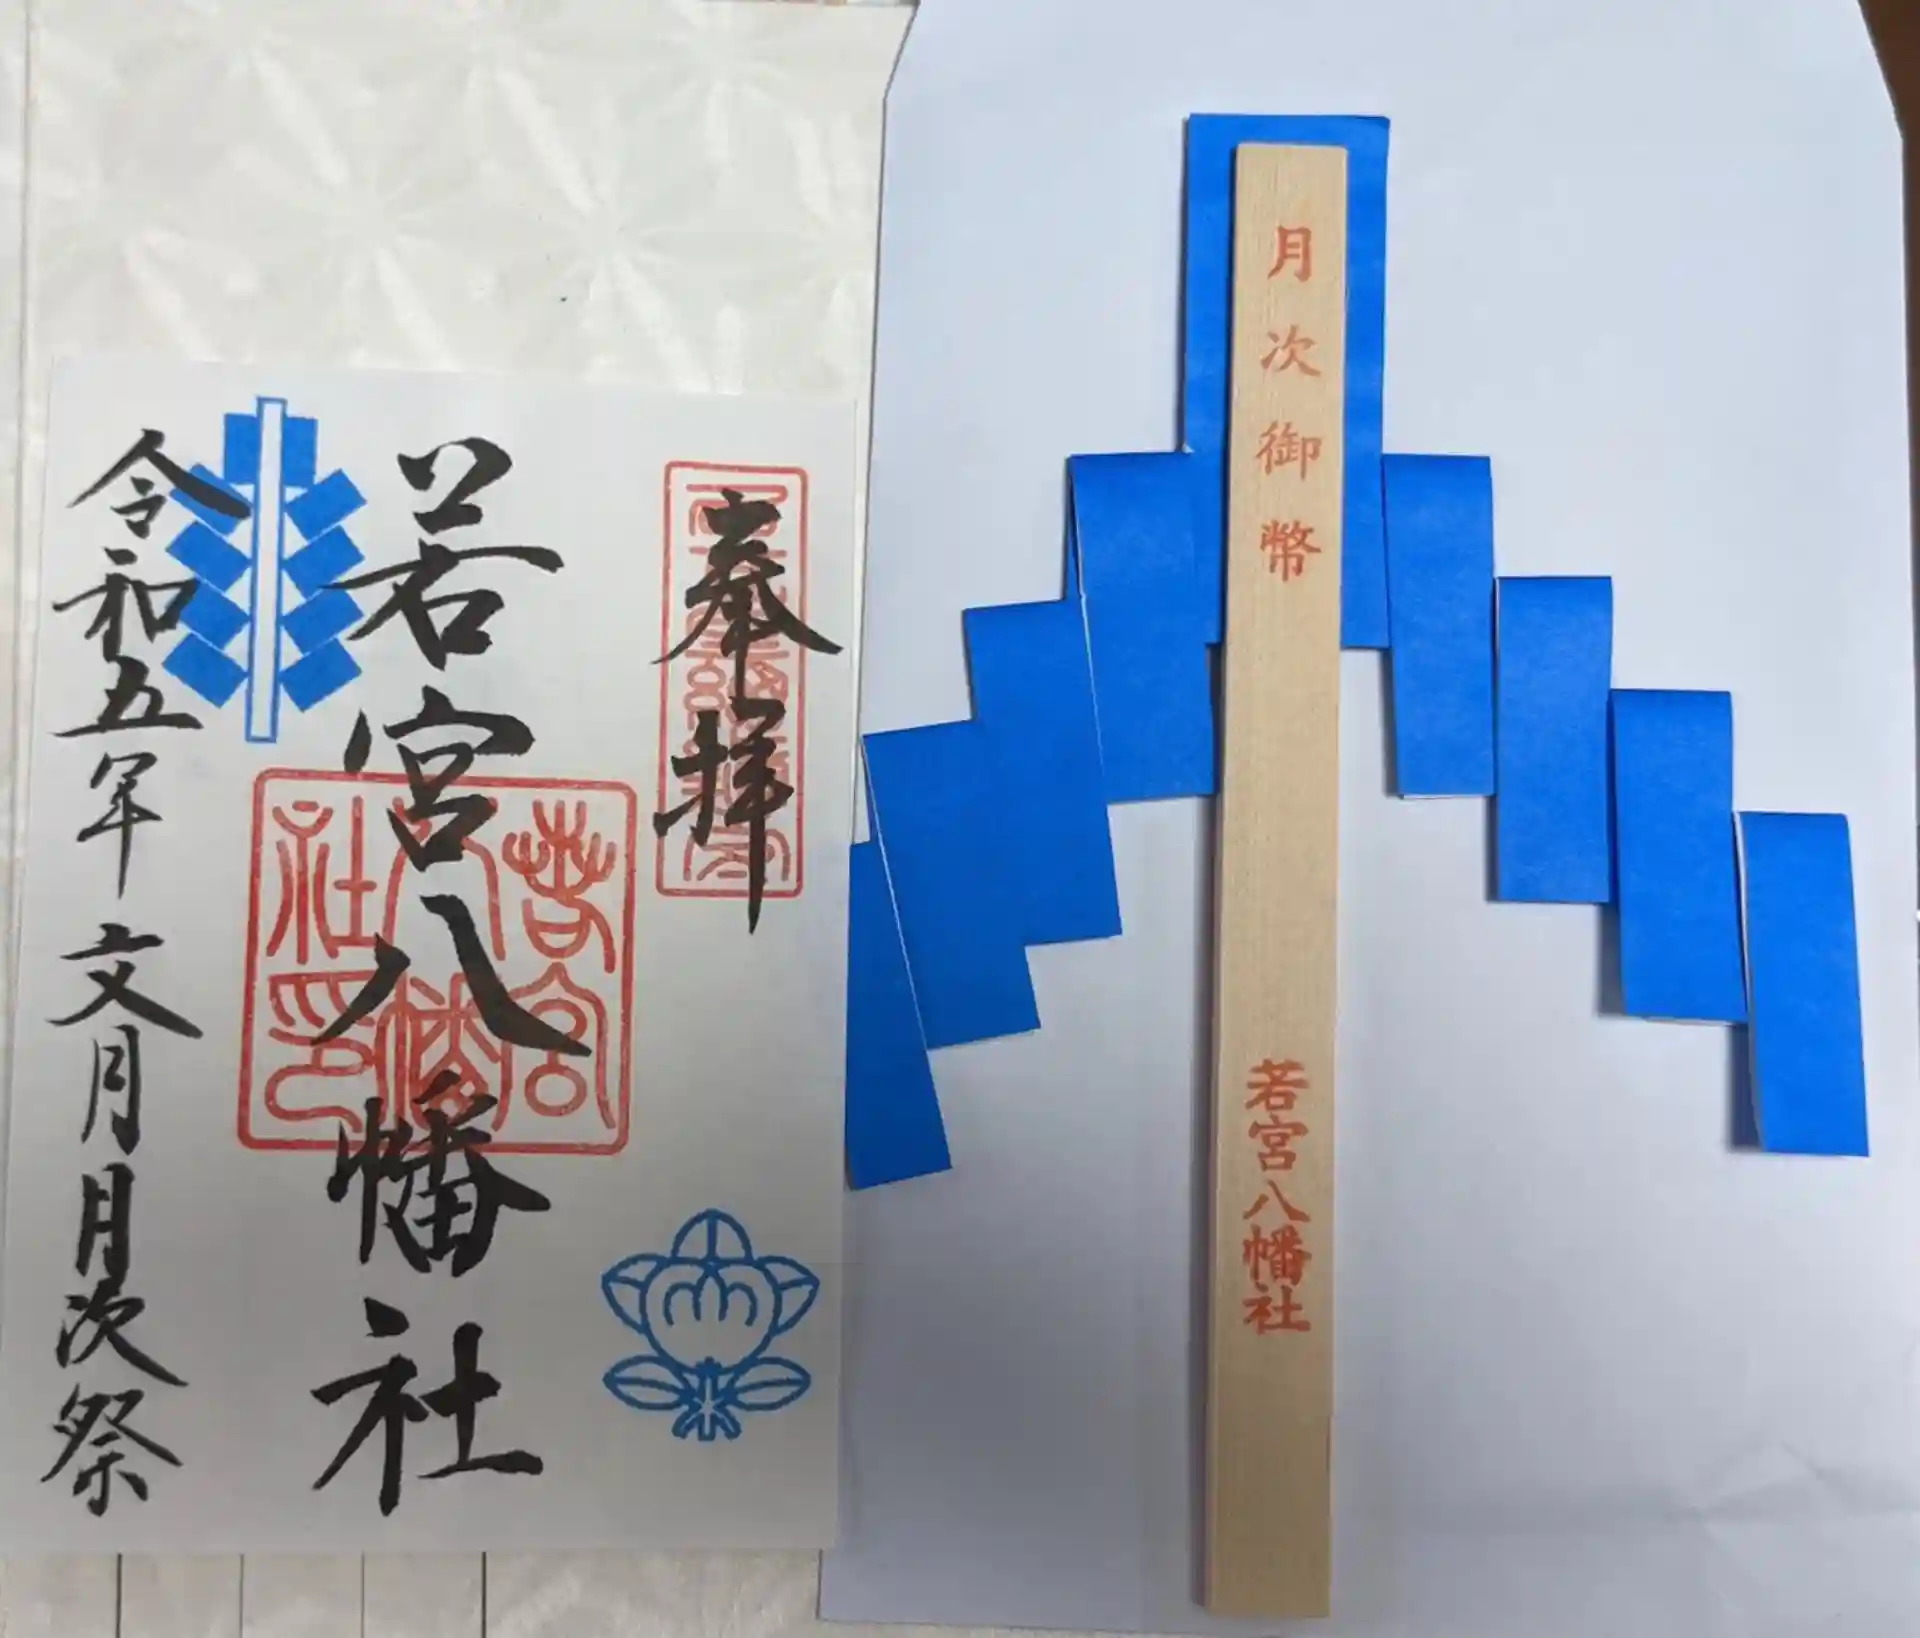 奉拝
若宮八幡社
若宮
八幡
社印
令和五年 文月月次祭
月次御幣
若宮八幡社